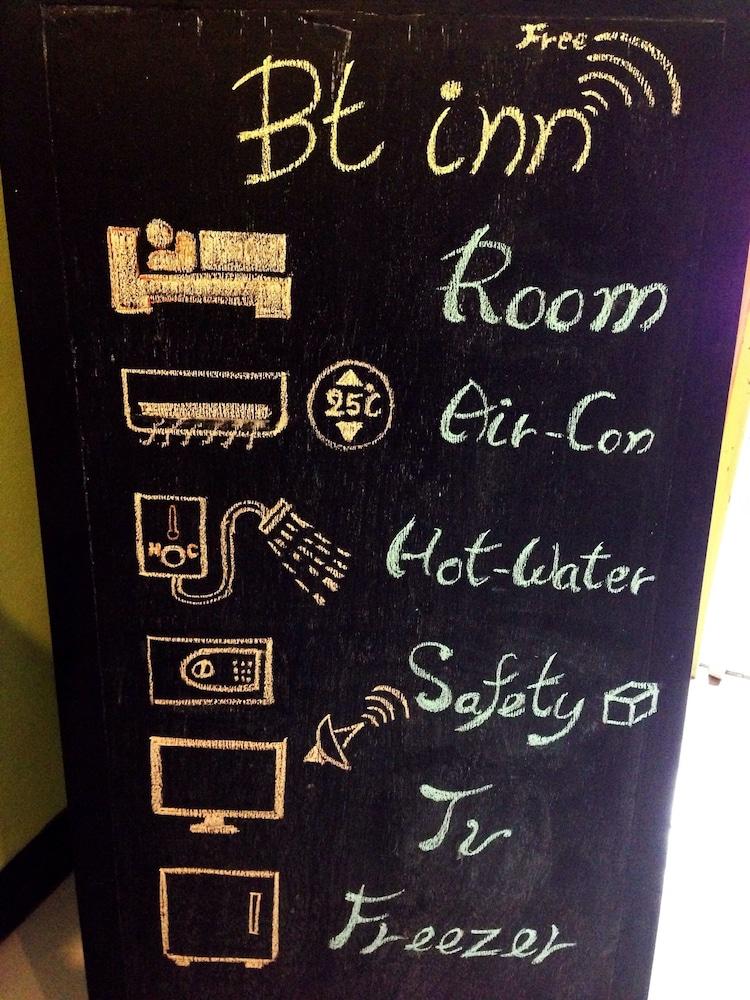 Free
Bt inn
Room
25°C
Air-Con
H C
Hot-Water
Safety
Tv
Freezer